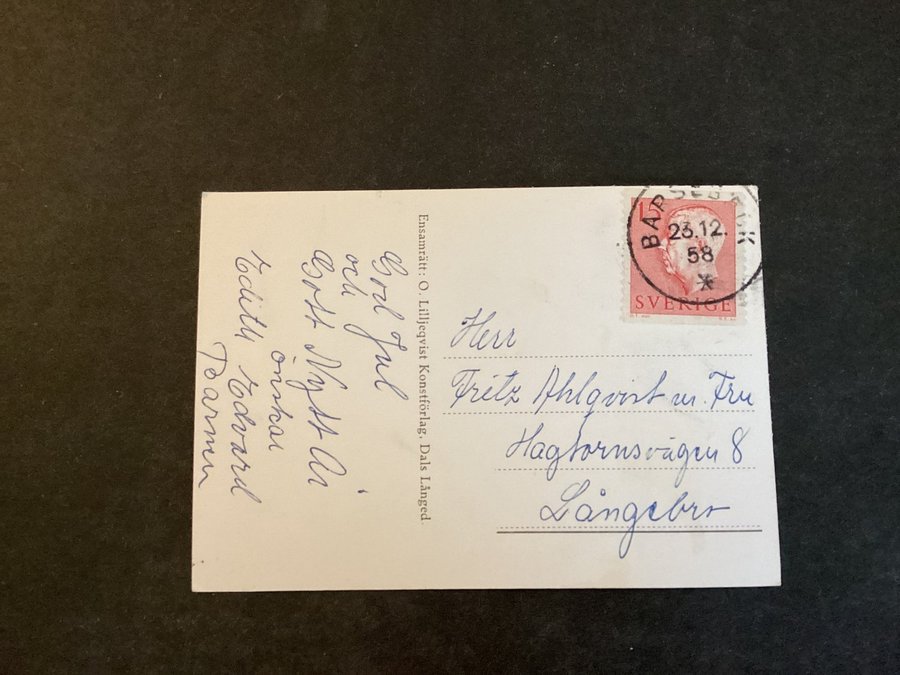 God Jul
och
Gott Nytt År
önskar
Edith Edvard
Barnen
Ensamrätt: O. Lilljeqvist Konstförlag, Dals Långed.
15
BARSEBÄCK
23.12.
58
SVERIGE
Herr
Fritz Ahlqvist m. Fru
Hagtornsvägen 8
Långebro